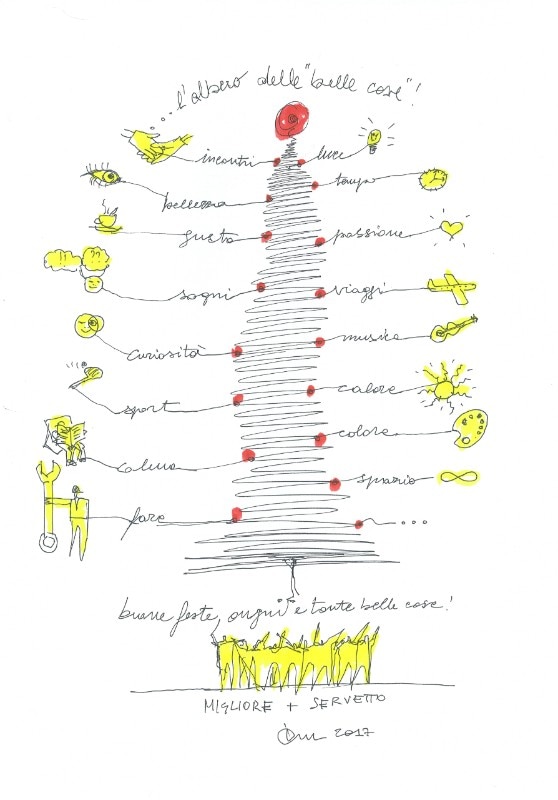 ...l'albero delle "belle cose"!
incontri
luce
bellezza
tempo
gusto
passione
!! ??
sogni
viaggi
curiosità
musica
sport
calore
colore
calma
spazio
fare
...
buone feste, auguri e tante belle cose!
MIGLIORE + SERVETTO
2017